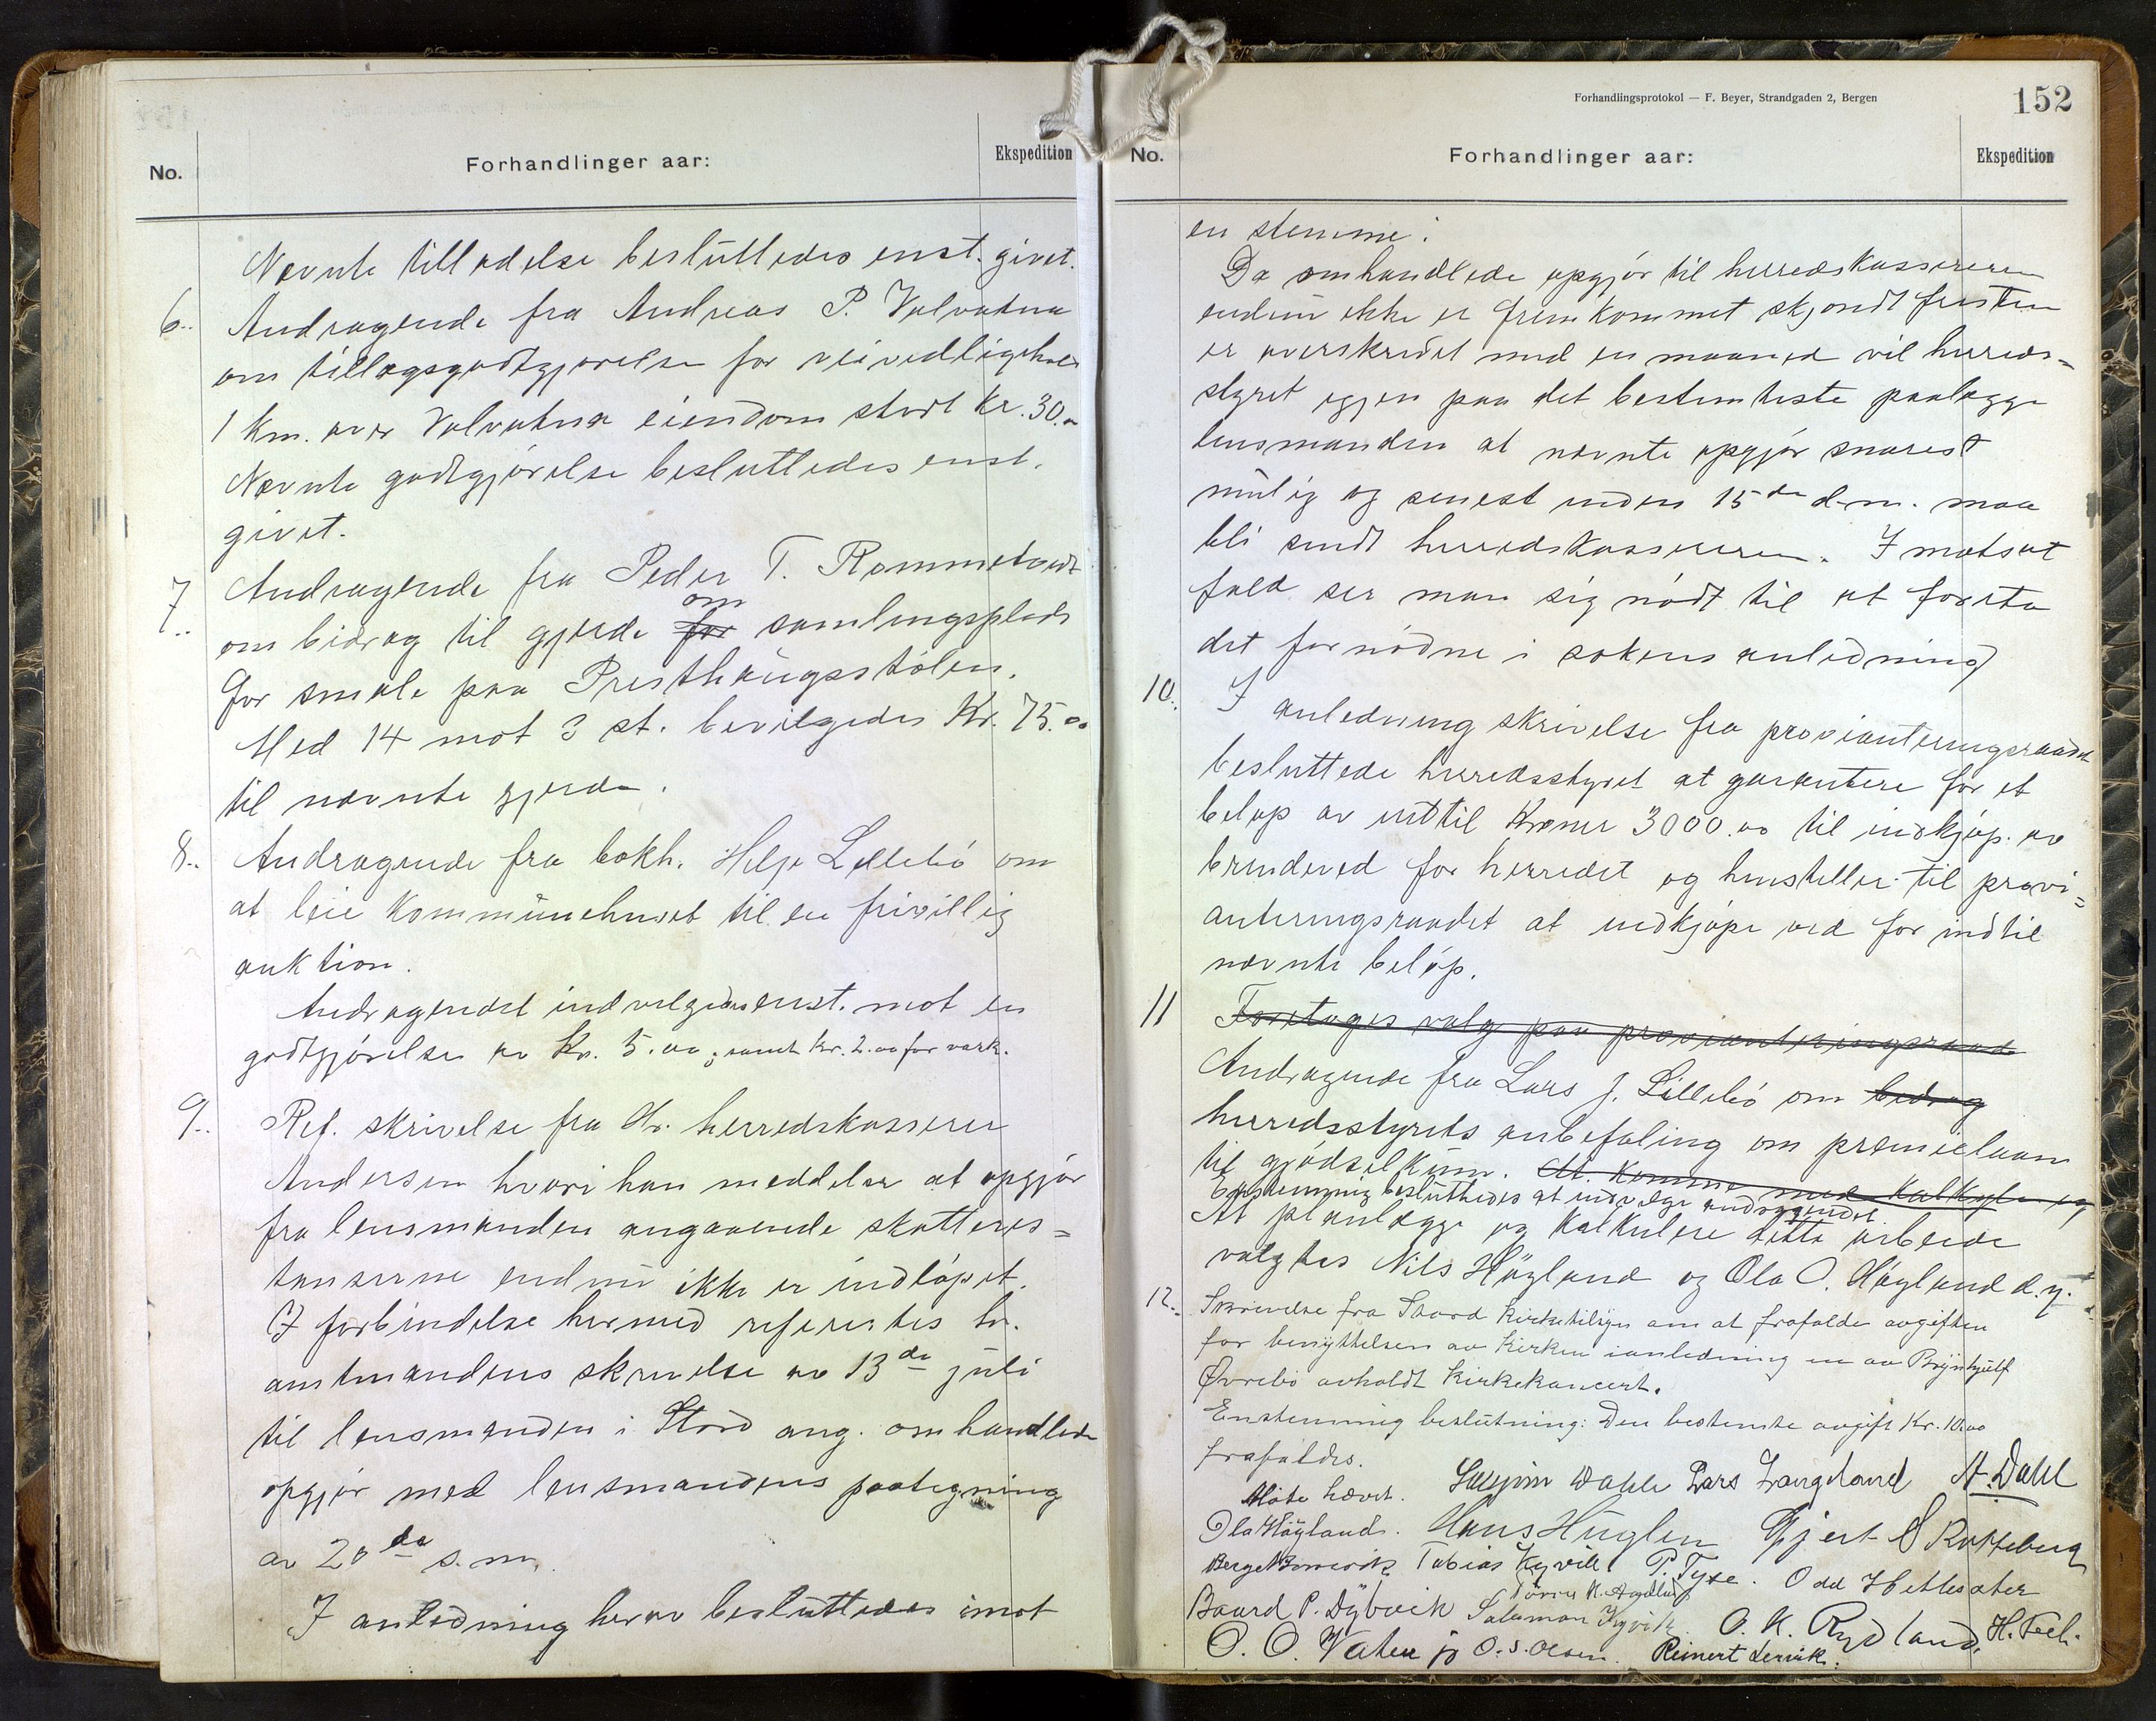 No.
Forhandlinger aar:
Ekspedition
Nævnte tilladelse besluttedes enst. givet.
6..
Andragende fra Andreas P. Valvatna
om tillægsgodtgjørelse for veivedligehold
1 km. over Valvatna eiendom stort kr. 30.-
Nævnte godtgjørelse besluttedes enst.
givet.
7..
Andragende fra Peder T. Rommetvedt
om bidrag til gjerde for om samlingsplads
for smale paa Presthaugsstölen.
Med 14 mot 3 st. bevilgedes Kr. 75.oo
til nævnte gjerde.
8..
Andragende fra bokh. Helje Lillebö om
at leie Kommünehuset til en frivillig
auktion.
Andragendet indvilgedes enst. mot en
godtgjörelse av Kr. 5.oo, samt kr. 2.oo for vask.
9..
Ref. skrivelse fra Hr. herredskasserer
Andersen hvori han meddeler at opgjör
fra lensmanden angaaende skatteres=
tanserne endnü ikke er indlöpet.
I forbindelse hermed refereites hr.
amtmandens skrivelse av 13de jüli
til lensmanden i Stord ang. omhandlede
opgjör med lensmandens paategning
av 20de s.m.
I anledning herav besluttedes imot
Forhandlingsprotokol — F. Beyer, Strandgaden 2, Bergen
152
No.
Forhandlinger aar:
Ekspedition
en stemme:
Da omhandlede opgjör til herredskassereren
endnü ikke er fremkommet skjöndt fristen
er overskredet med en maaned vil herreds=
styret igjen paa det bestemteste paalægge
lensmanden at nævnte opgjör snarest
mulig og senest inden 15de d.m. maa
bli sendt herredskassereren. I motsat
fald ser man sig nödt til at foreta
det fornödne i sakens anledning
10..
I anledning skrivelse fra provianteringsraadet
besluttede herredsstyret at garantere for et
belöp av indtil Kroner 3000.oo til indkjöp av
brendeved for herredet og henstiller til provi=
anteringsraadet at indkjöpe ved for indtil
nævnte belöp.
11
Foretages valg paa provianteringsraad
Andragende fra Lars J. Lillebö om bidrag
herredsstyrets anbefaling om premielaan
til gjödselkum. At komme med kalkyle og
Enstemmig besluttedes at indvilge andragendet.
At planlægge og kalkülere dette arbeide
valgtes Nils Högland og Ola O. Högland d.y.
12..
Skrivelse fra Stord Kirketilsyn om at frafalde avgiften
for benyttelsen av Kirken ianledning en av Brynhjulf
Övrebö avholdt Kirkekoncert.
Enstemmig beslutning: Den bestemte avgift Kr. 10.oo
frafaldes.
Möte hævet.
Dahle Lars Langeland A. Dahl
Ola Högland. Hans Huglen Gjert
Tobias Kyvik P. Tyse. Odd Hetlesater
Baard P. Dybvik Salamon Kyvik. O. K. Rydland.
O. O. Vatna jr O. S. Olsen. Reinert Lervik.